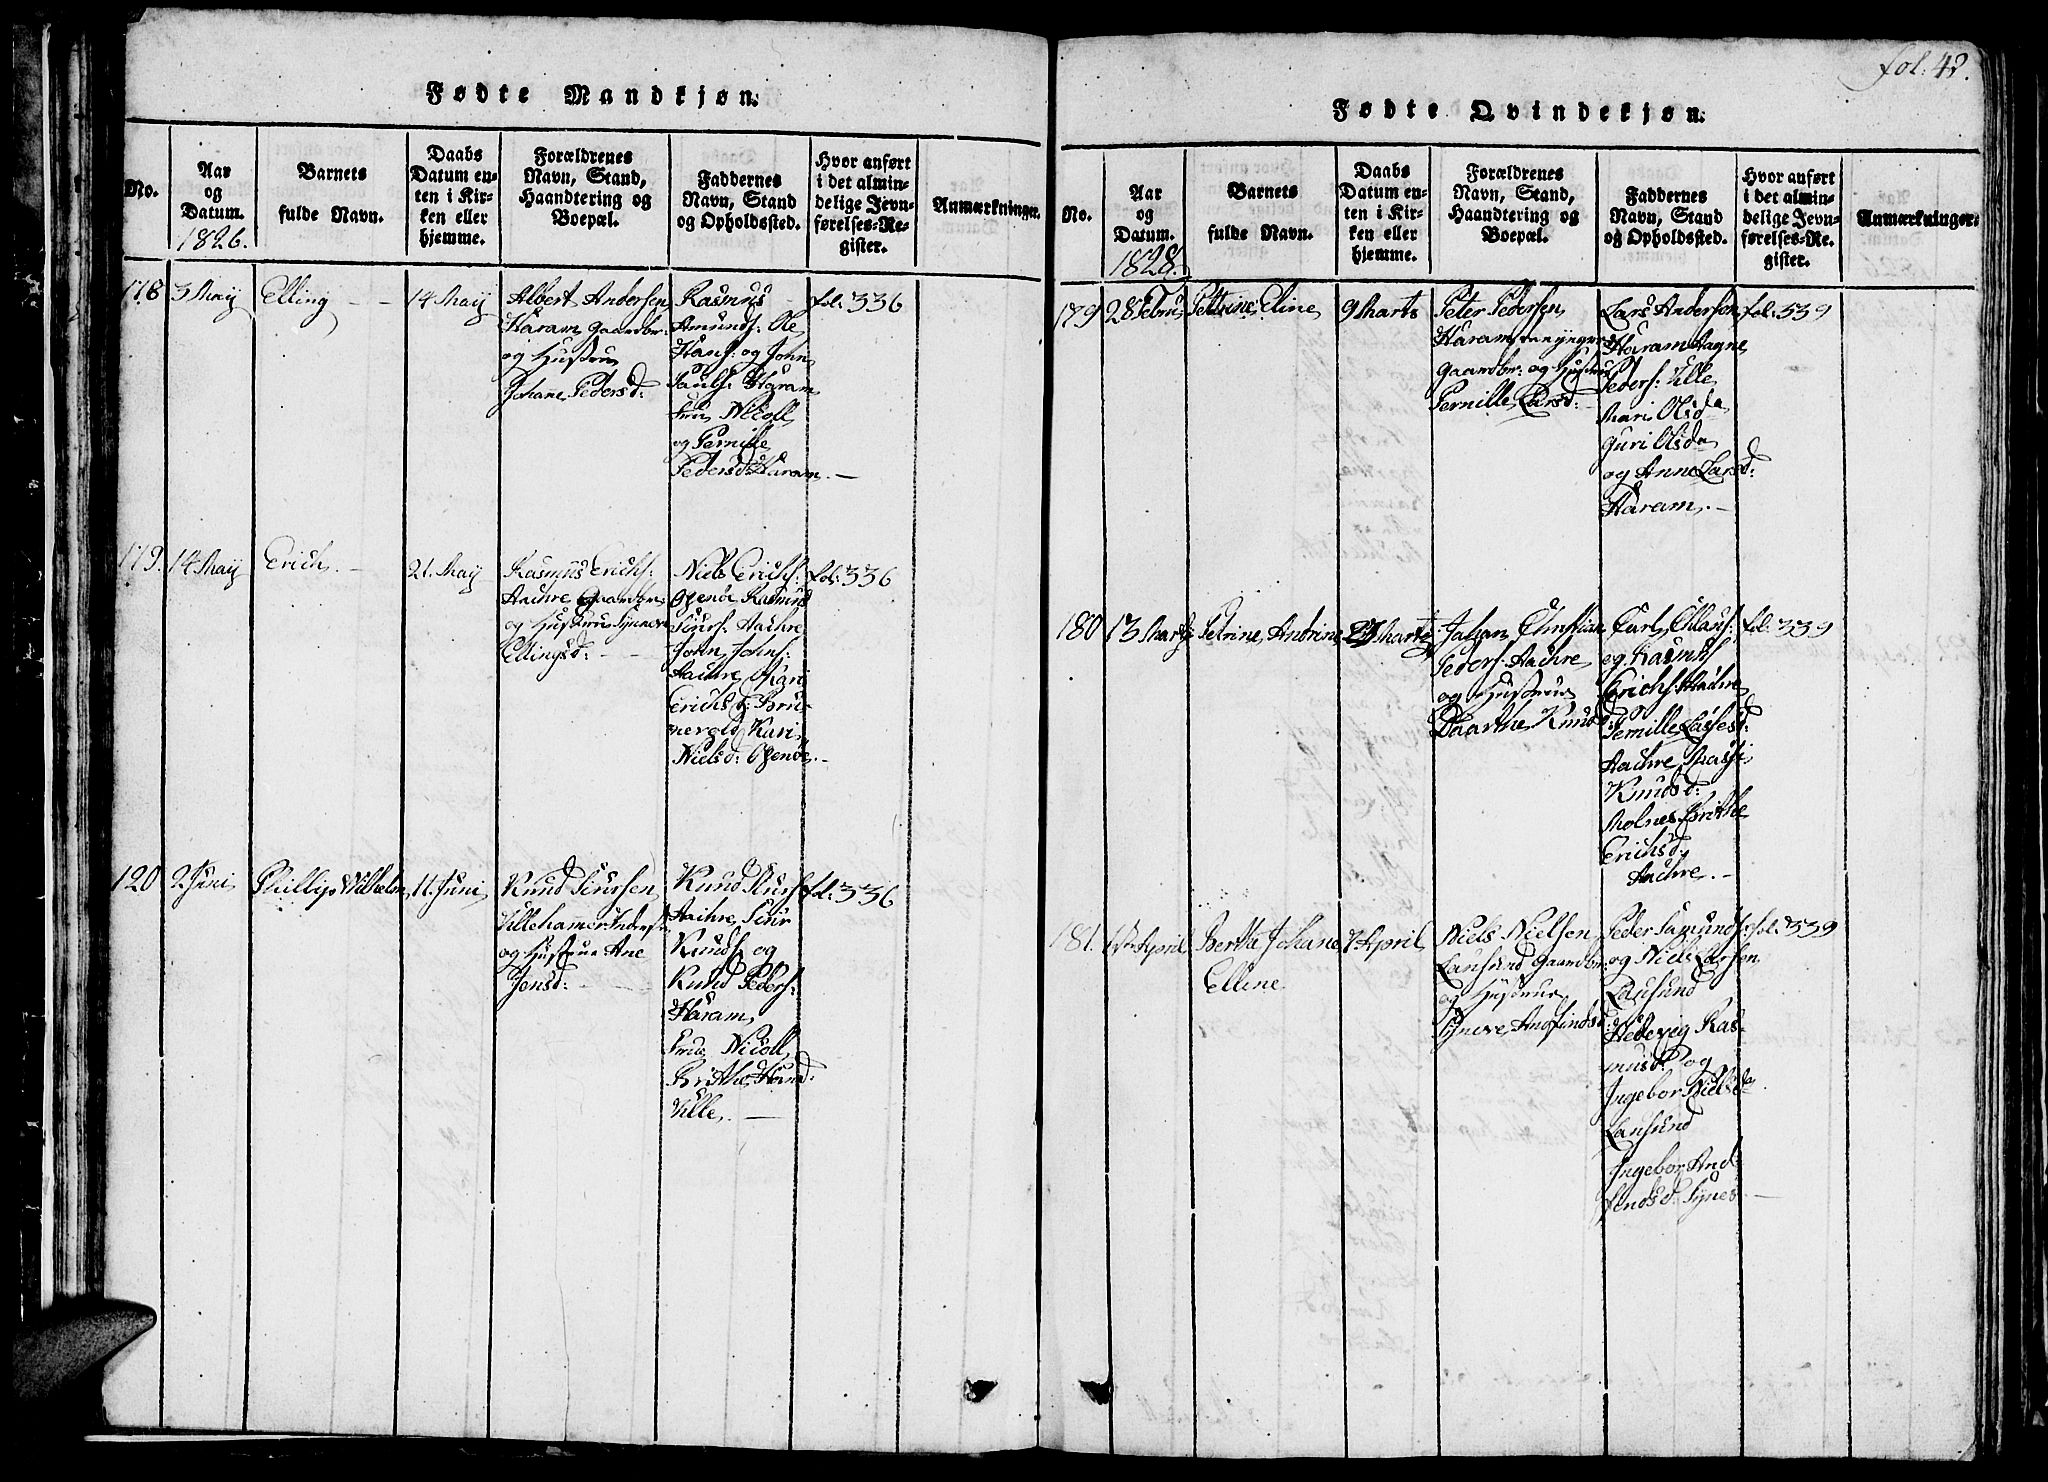 fol. 42.
Fødte Mandkjøn.
No.
Aar
og
Datum.
1826.
Barnets
fulde Navn.
Daabs
Datum en-
ten i Kir-
ken eller
hjemme.
Forældrenes
Navn, Stand,
Haandtering og
Boepæl.
Faddernes
Navn, Stand
og Opholdssted.
Hvor anført
i det almin-
delige Jevn-
førelses-Re-
gister.
Anmærkninger.
118
3 Maij
Elling
14 Maij
Albert Andersen
Haram Gaardbr:
og Hustrue
Johanne Pedersd:
Rasmus
Amunds: Ole
Hans: og John
Pauls: Haram
Nicoll
og Pernille
Pedersd: Haram. —
fol: 336
119.
14 Maij
Erich. —
21. Maij
Rasmus Erichs:
Aachre Gaardbr:
og Hustrue Synneve
Ellingsd:
Niels Erichs:
Rasmus
Siurs: Aachre
John Johns:
Aachre Mari
Erichsd:
Kari
Nielsd:
fol: 336
120
2 Juni
Phillip Wilhelm
11. Juni
Knud Siursen
Ullehammer Inderst
og Hustrue Ane
Jensd:
Knud Siurs:
Aachre, Siur
Knuds: og
Knud Peders:
Haram,
Nicoll,
Brithe
Ulle. —
fol: 336
Fødte Qvindekjøn.
No.
Aar
og
Datum.
1828.
Barnets
fulde Navn.
Daabs
Datum en-
ten i Kir-
ken eller
hjemme.
Forældrenes
Navn, Stand,
Haandtering og
Boepæl.
Faddernes
Navn, Stand
og Opholdssted.
Hvor anført
i det almin-
delige Jevn-
førelses-Re-
gister.
Anmærkninger.
179
28 Febru
Pettrine Eline
9 Marts
Peter Pedersen
Haram
Gaardbr: og Hustrue
Pernille Larsd:
Lars Andersen
Haram Aagne
Peders: Ulle
Mari Olsda
Guri Olsda
og Anne Larsd:
Haram. —
fol: 339
180
13 Marts
Petrine Andrine
23 Marts
Johan Christian
Peders: Aachre
og Hustrue
Daarthe Knudsd:
Carl Claus:
og Rasmus
Erichs: Aachre
Pernille Lassesd:
Aachre Massi
Knudsd:
Molnes Brithe
Erichsd:
Aachre. —
fol: 339
181.
1ste April
Berthe Johane
Elline
7 April
Niels Nielsen
Lausund Gaardbr:
og Hustrue
Synneve Andfindsd:
Peder Samunds:
og Niels Larsen
Lausund
Hedevig Ras-
musd: og
Ingebor Nielsda
Lausund
Ingebor And-
fendsd: Synes —
fol: 339